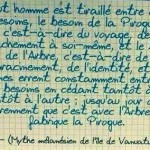 ut homme est tiraillé entre
esoins, le besoin de la Pirogue
c'est-à-dire du voyage, de
achement à soi-même, et le
de l'Arbre, c'est-à-dire de
racinement, de l'identité, et
mes errent constamment entre
besoins en cédant tantôt à
tôt à l'autre ; jusqu'au jour
rennent que c'est avec l'Arbre
fabrique la Pirogue.
(Mythe mélanésien de l'île de Vanuatu